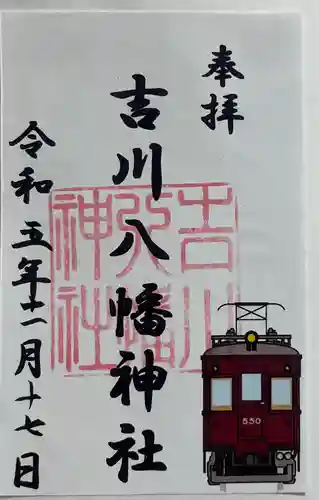 奉拝
吉川八幡神社
令和五年十一月十七日
吉川
八幡
神社
550